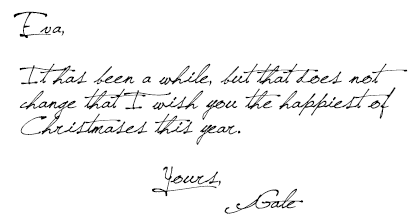 Eva,
It has been a while, but that does not
change that I wish you the happiest of
Christmases this year.
Yours,
Gale